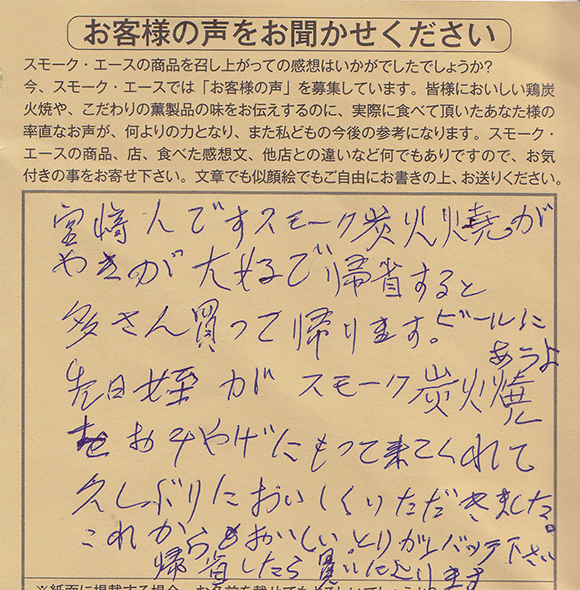 お客様の声をお聞かせください
スモーク・エースの商品を召し上がっての感想はいかがでしたでしょうか?
今、スモーク・エースでは「お客様の声」を募集しています。皆様においしい鶏炭
火焼や、こだわりの薫製品の味をお伝えするのに、実際に食べて頂いたあなた様の
率直なお声が、何よりの力となり、また私どもの今後の参考になります。スモーク・
エースの商品、店、食べた感想文、他店との違いなど何でもありですので、お気
付きの事をお寄せ下さい。文章でも似顔絵でもご自由にお書きの上、お送りください。
宮崎人ですスモーク炭火焼が
やきが大好で帰省すると
多さん買って帰ります。ビールに
あうよ
先日姪がスモーク炭火焼
をおみやげにもって来てくれて
久しぶりにおいしくいただきました。
これからもおいしいとりがんバッテ下さい
帰省したら買いに
ります